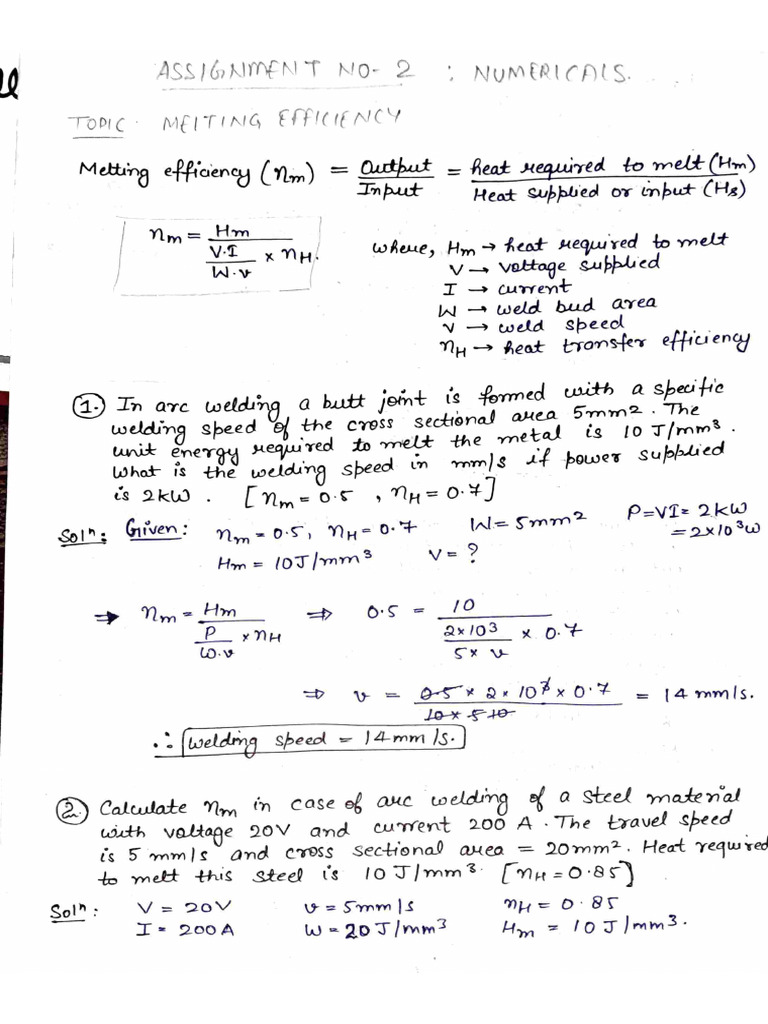 ASSIGNMENT NO- 2 : NUMERICALS.
TOPIC : MELTING EFFICIENCY
Melting efficiency (ηm) = Output / Input = heat required to melt (Hm) / Heat supplied or input (Hs)
ηm = Hm / (V.I / W.v × ηH.
where, Hm → heat required to melt
V → voltage supplied
I → current
W → weld bud area
v → weld speed
ηH → heat transfer efficiency
1. In arc welding a butt joint is formed with a specific
welding speed of the cross sectional area 5mm2. The
unit energy required to melt the metal is 10 J/mm3.
What is the welding speed in mm/s if power supplied
is 2kW. [ηm = 0.5 , ηH = 0.7]
Soln: Given: ηm = 0.5, ηH = 0.7 W = 5mm2 P=VI= 2kW
= 2×103w
Hm = 10J/mm3 V = ?
⇒ ηm = Hm / (P / W.v × ηH) ⇒ 0.5 = 10 / (2×103 / 5× v × 0.7)
⇒ v = 0.5 × 2 × 103 × 0.7 / 10 × 5 10 = 14 mm/s.
∴ Welding speed = 14mm/s.
2. Calculate ηm in case of arc welding of a steel material
with voltage 20V and current 200 A. The travel speed
is 5 mm/s and cross sectional area = 20mm2. Heat required
to melt this steel is 10 J/mm3. [ηH = 0.85]
Soln: V = 20V v = 5mm/s ηH = 0.85
I = 200A W = 20J/mm3 Hm = 10J/mm3.